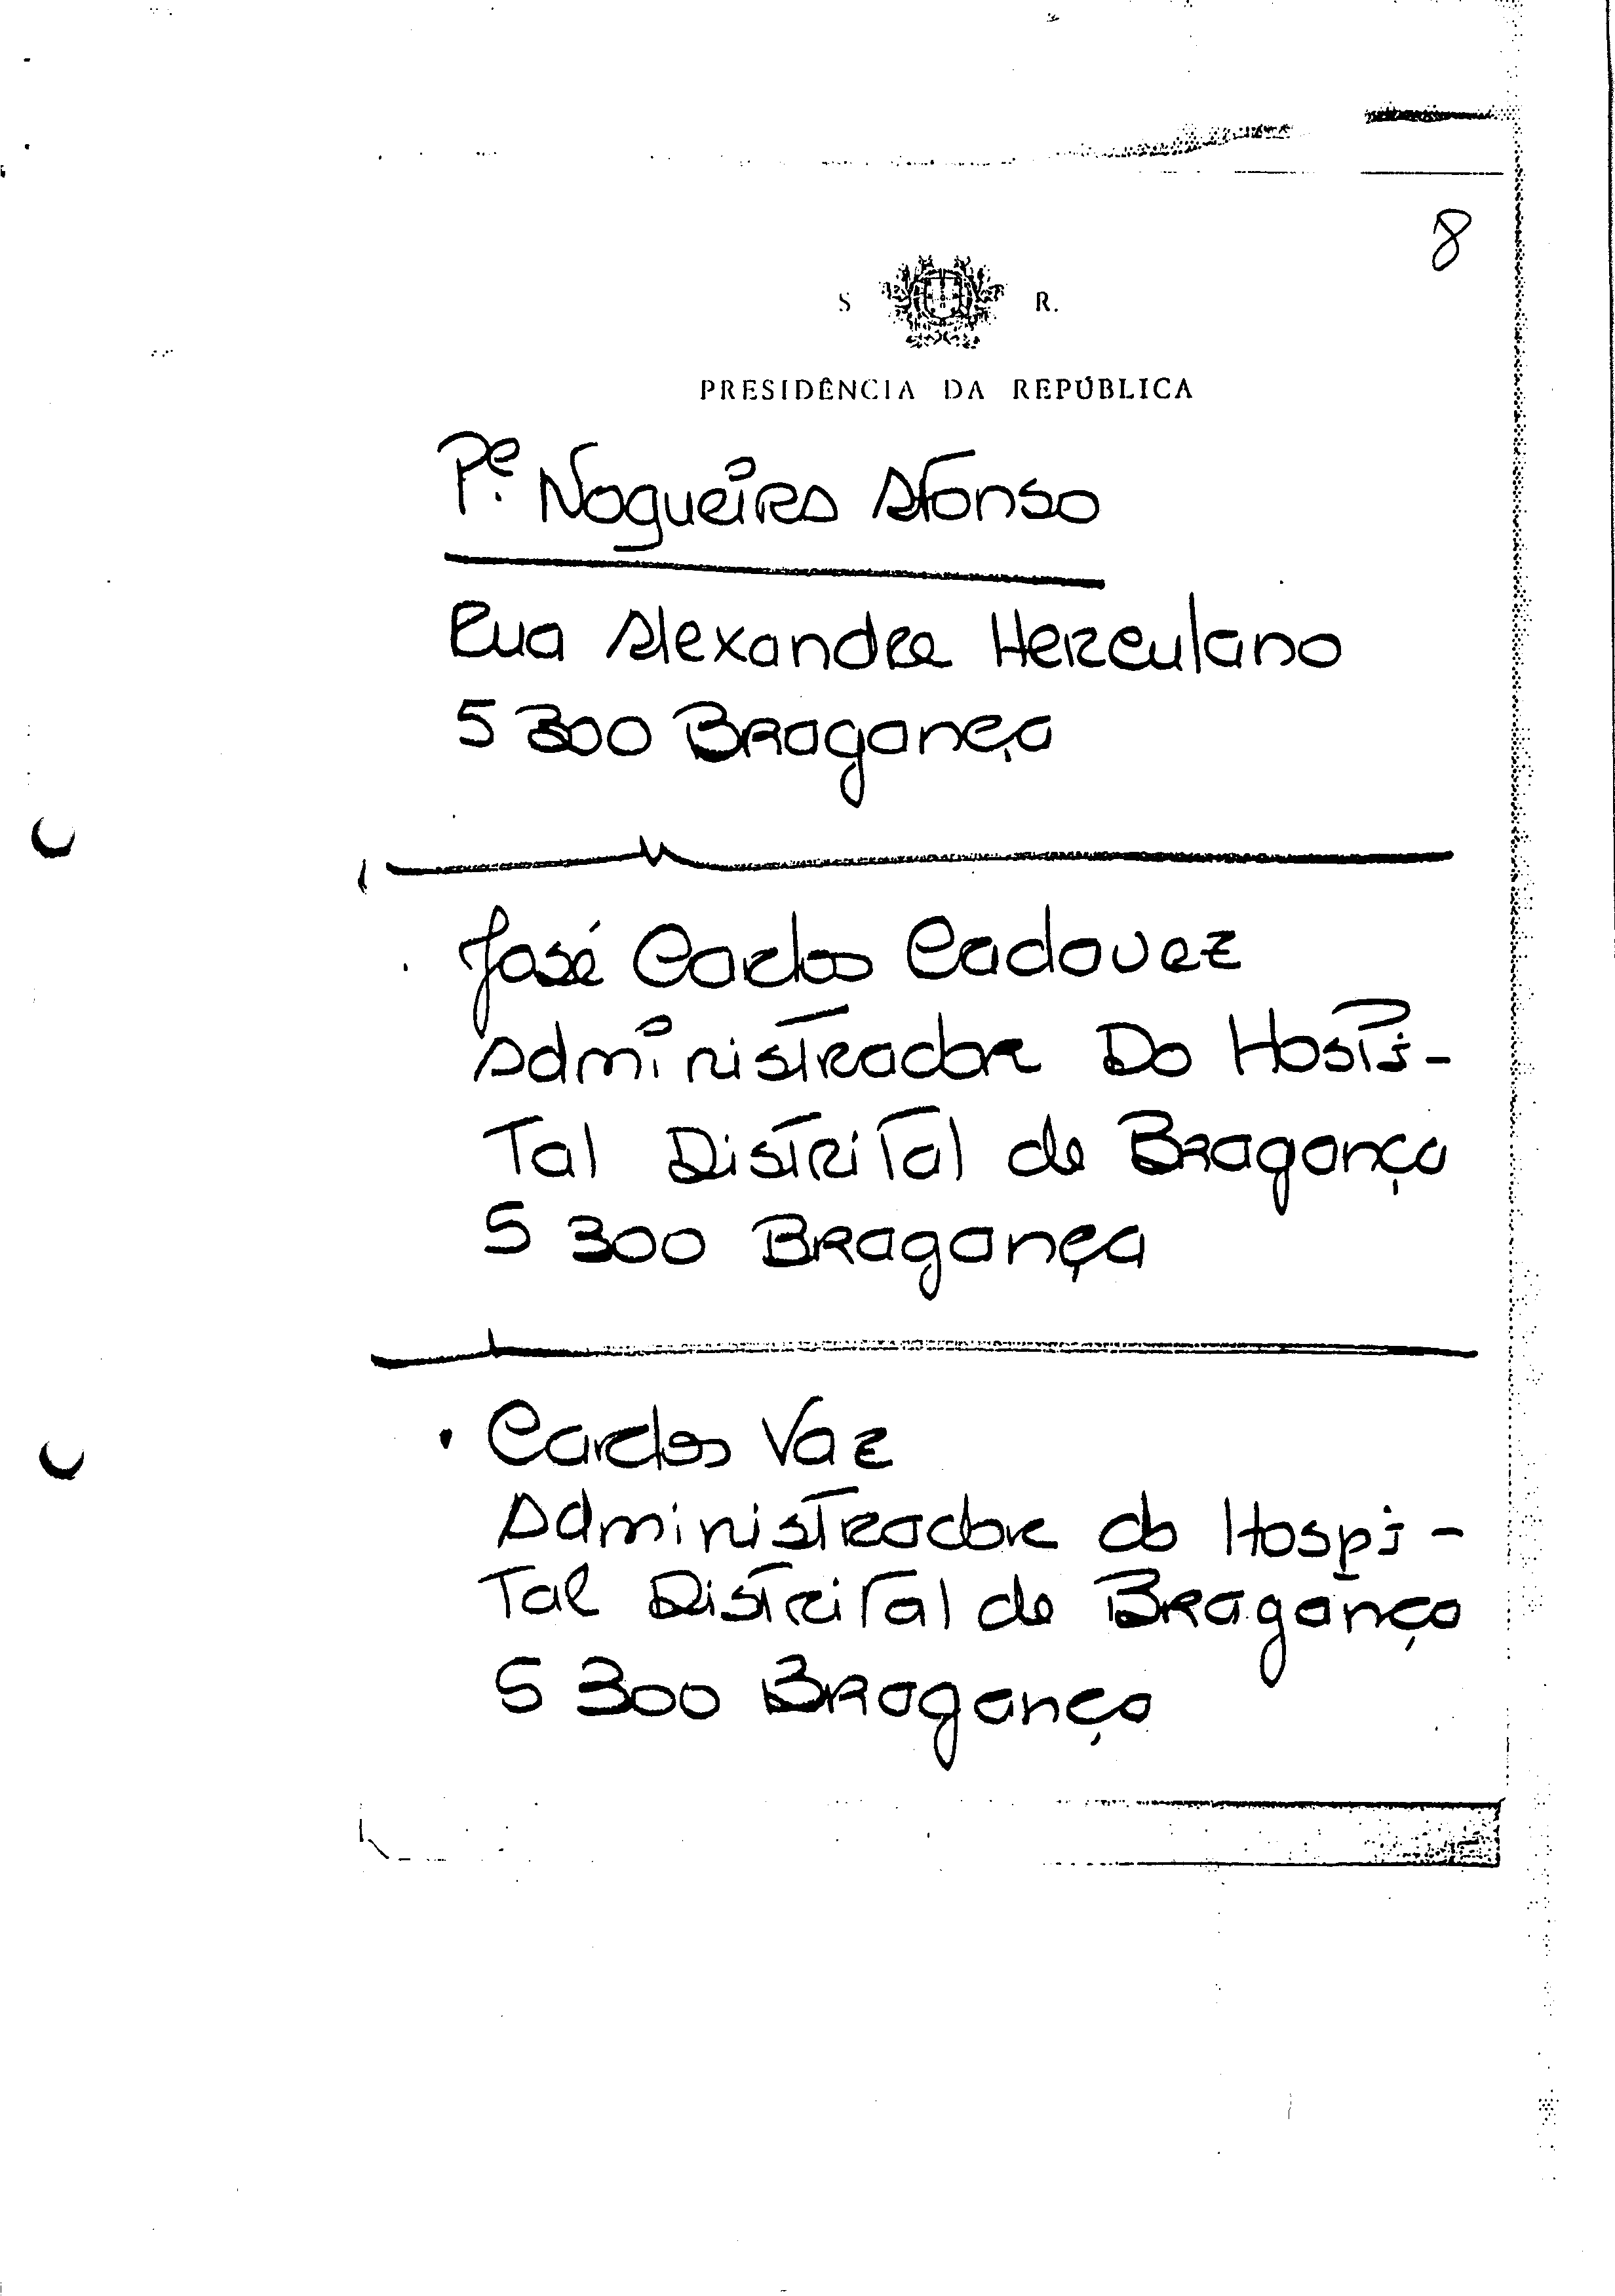 8
S R.
PRESIDÊNCIA DA REPÚBLICA
Pe. Nogueira Afonso
Rua Alexandre Herculano
5300 Bragança
José Carlos Cadavez
Administrador Do Hospi-
Tal Distrital de Bragança
5300 Bragança
Carlos Vaz
Administrador do Hospi-
Tal Distrital de Bragança
5300 Bragança